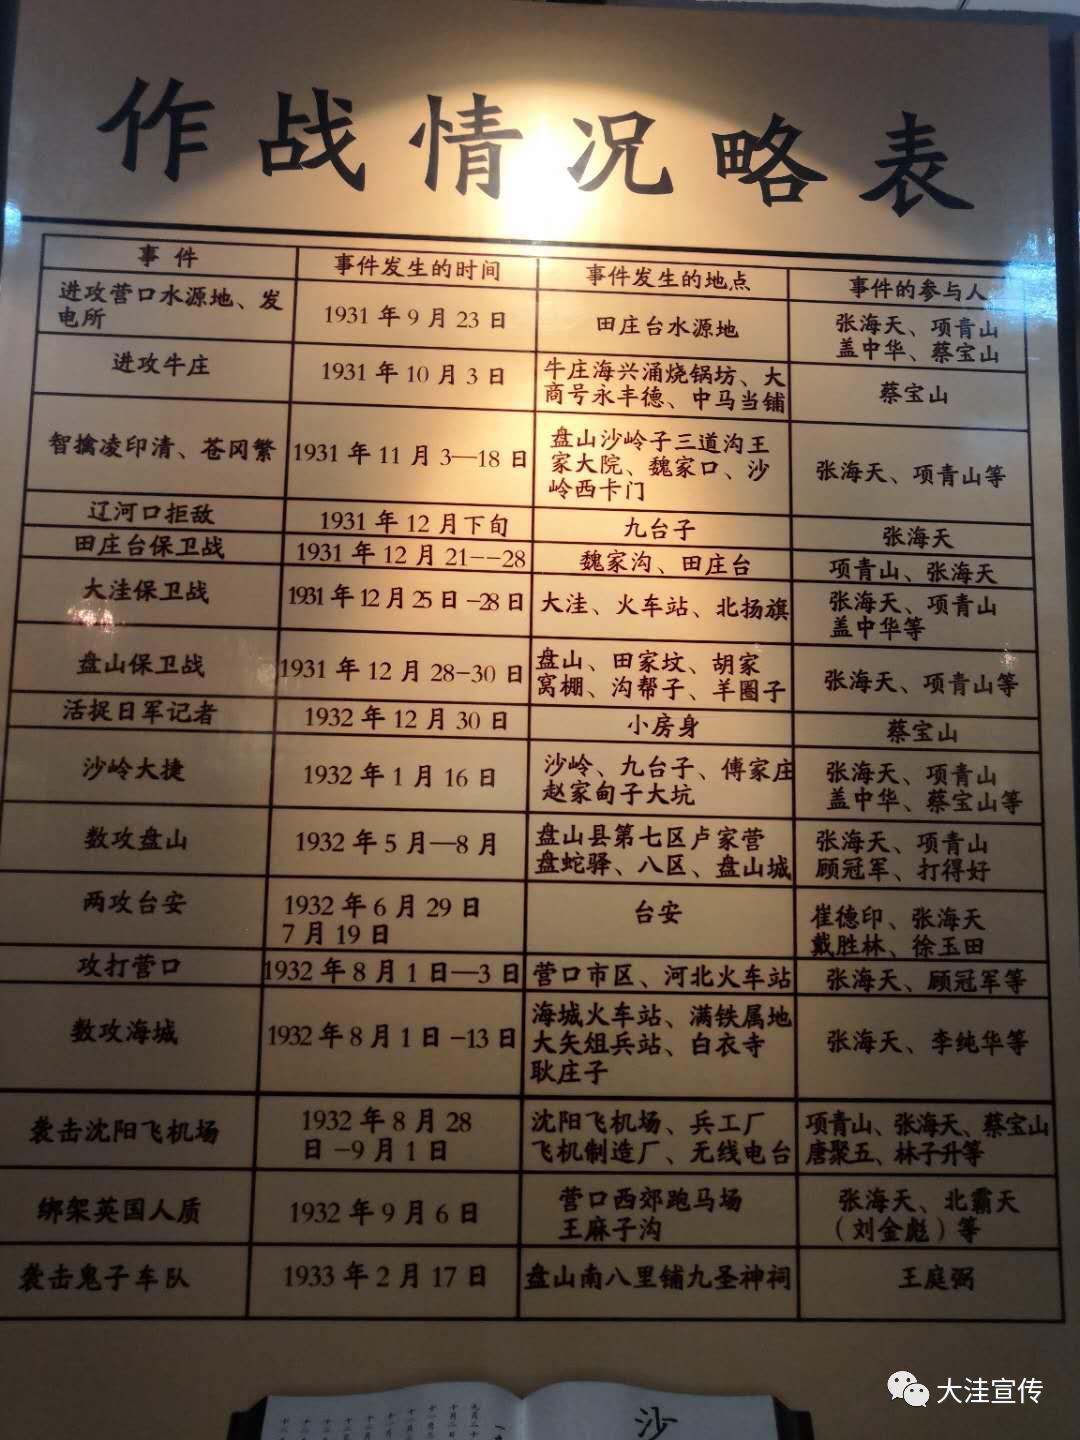 作战情况略表
事件 事件发生的时间 事件发生的地点 事件的参与人
进攻营口水源地、发
电所
1931年9月23日
田庄台水源地
张海天、项青山
盖中华、蔡宝山
进攻牛庄
1931年10月3日
牛庄海兴涌烧锅坊、大
商号永丰德、中马当铺
蔡宝山
智擒凌印清、苍冈繁
1931年11月3—18日
盘山沙岭子三道沟王
家大院、魏家口、沙
岭西卡门
张海天、项青山等
辽河口拒敌
1931年12月下旬
九台子
张海天
田庄台保卫战
1931年12月21--28
魏家沟、田庄台
项青山、张海天
大洼保卫战
1931年12月25日-28日
大洼、火车站、北扬旗
张海天、项青山
盖中华等
盘山保卫战
1931年12月28-30日
盘山、田家坟、胡家
窝棚、沟帮子、羊圈子
张海天、项青山等
活捉日军记者
1932年12月30日
小房身
蔡宝山
沙岭大捷
1932年1月16日
沙岭、九台子、傅家庄
赵家甸子大坑
张海天、项青山
盖中华、蔡宝山等
数攻盘山
1932年5月—8月
盘山县第七区卢家营
盘蛇驿、八区、盘山城
张海天、项青山
顾冠军、打得好
两攻台安
1932年6月29日
7月19日
台安
崔德印、张海天
戴胜林、徐玉田
攻打营口
1932年8月1日—3日
营口市区、河北火车站
张海天、顾冠军等
数攻海城
1932年8月1日-13日
海城火车站、满铁属地
大矢俎兵站、白衣寺
耿庄子
张海天、李纯华等
袭击沈阳飞机场
1932年8月28
日-9月1日
沈阳飞机场、兵工厂
飞机制造厂、无线电台
项青山、张海天、蔡宝山
唐聚五、林子升等
绑架英国人质
1932年9月6日
营口西郊跑马场
王麻子沟
张海天、北霸天
（刘金彪）等
袭击鬼子车队
1933年2月17日
盘山南八里铺九圣神祠
王庭弼
沙
大洼宣传